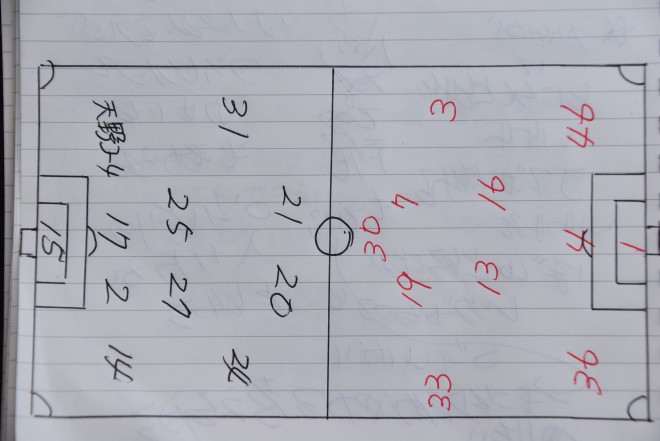 1
44 4 36
16 13
3 4 19 33
30
21 20
31
25 27
天野 17 2 14
15